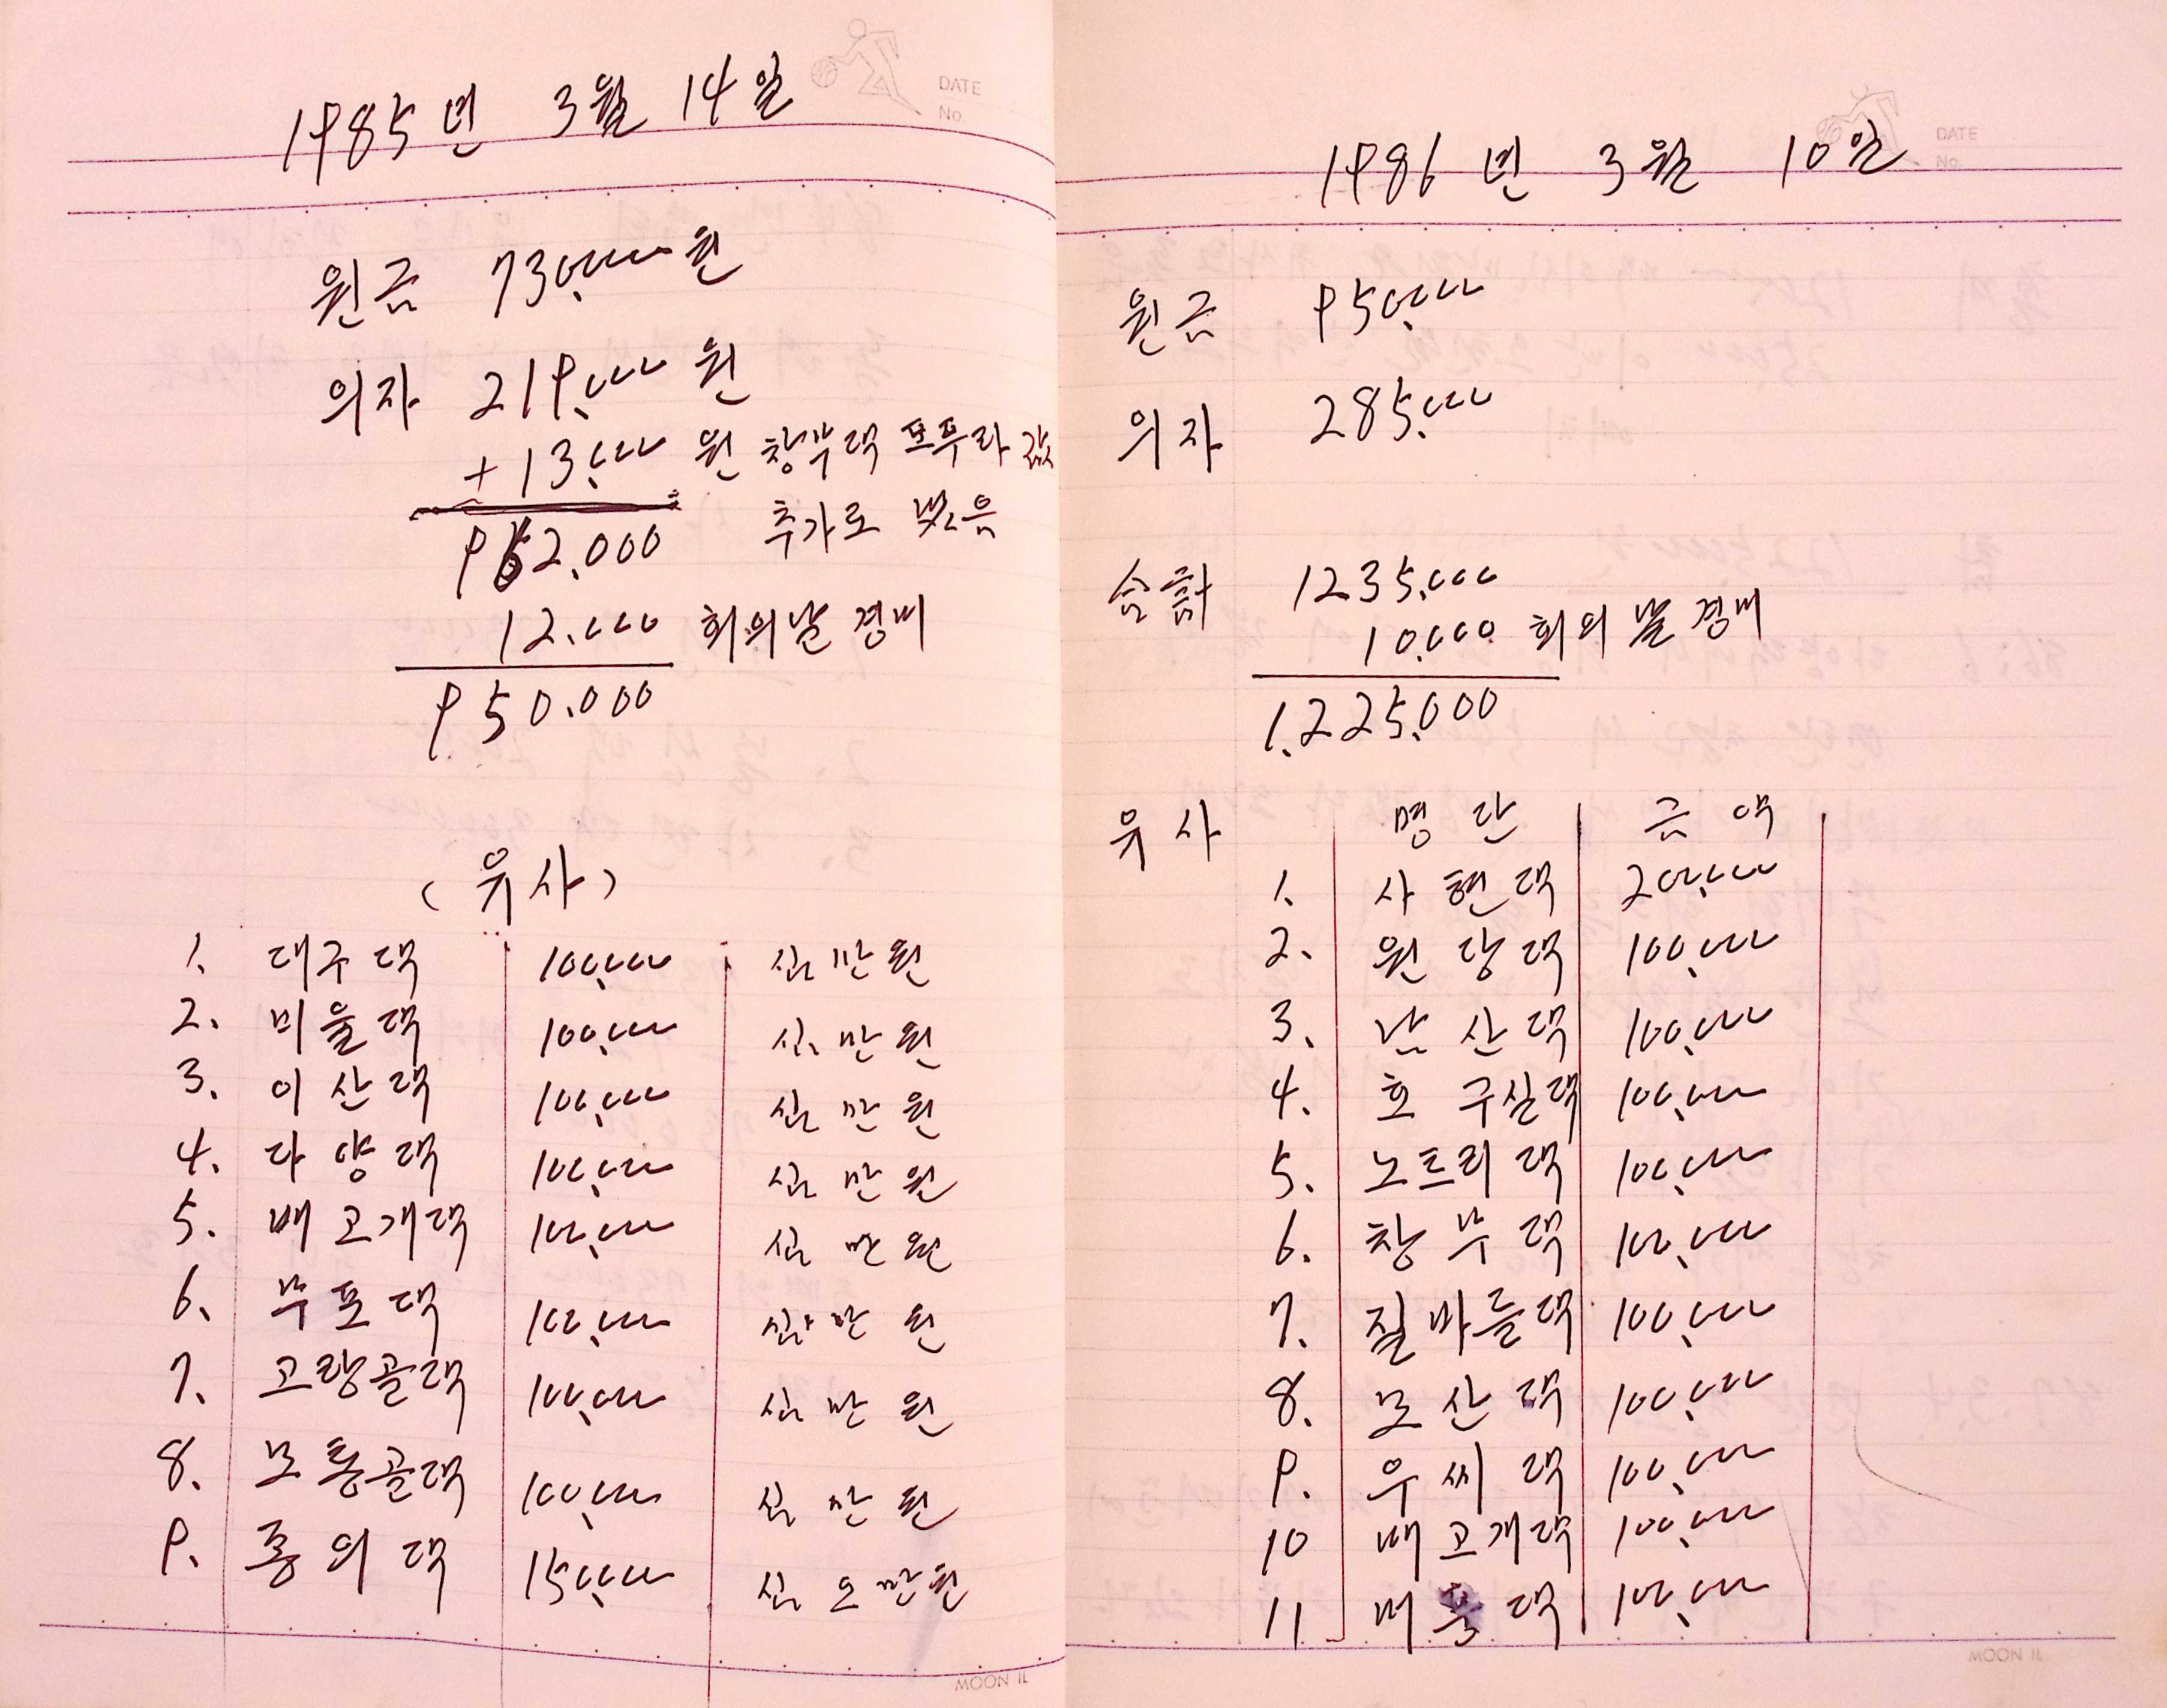 DATE
No
1985년 3월 14일
원금 730,000원
의자 219,000원
+13,000원 창부댁 포푸라 값
추가로 냈음
962,000
12.000 회의날 경비
950.000
(유사)
1. 대구댁 100,000 십만원
2. 미울댁 100,000 십만원
3. 이산댁 100,000 십만원
4. 다양댁 100,000 십만원
5. 배고개댁 100,000 십만원
6. 부포댁 100,000 십만원
7. 고랑골댁 100,000 십만원
8. 모통골댁 100,000 십만원
9. 종의댁 150,000 십오만원
MOON IL
DATE
No.
1986년 3월 10일
원금 950,000
의자 285,000
합계 1235,000
10,000 회의날 경비
1,225,000
유사 명단 금액
1. 사현댁 200,000
2. 원당댁 100,000
3. 난산댁 100,000
4. 호구실댁 100,000
5. 노트리댁 100,000
6. 창부댁 100,000
7. 질마들댁 100,000
8. 모산댁 100,000
9. 우씨댁 100,000
10 배고개댁 100,000
11 댁 100,000
MOON IL